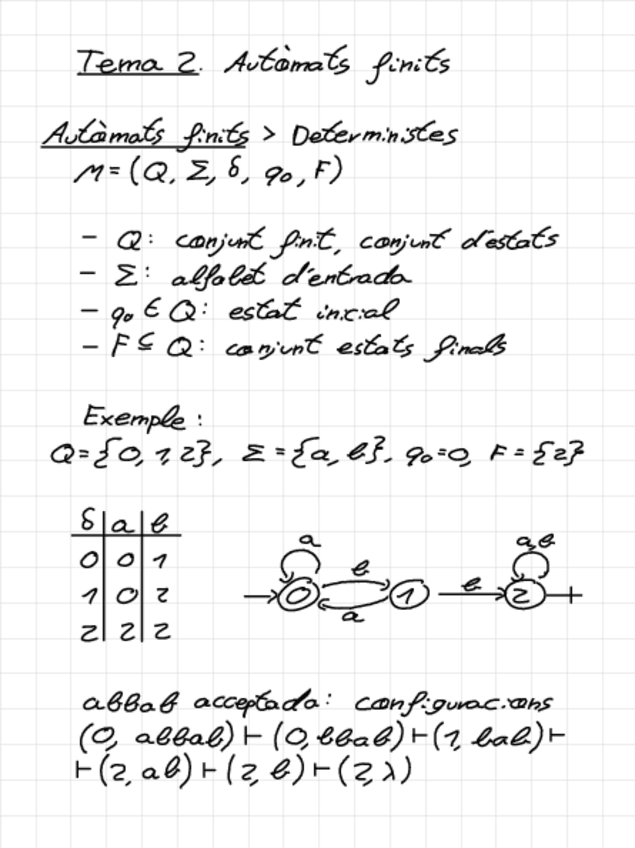 Tema 2. Autòmats finits
Autòmats finits > Deterministes
M = (Q, Σ, δ, q₀, F)
- Q: conjunt finit, conjunt d'estats
- Σ: alfabet d'entrada
- q₀ ∈ Q: estat inicial
- F ⊆ Q: conjunt estats finals
Exemple:
Q = {0, 1, 2}, Σ = {a, b}, q₀ = 0, F = {2}
δ | a | b
0 | 0 | 1
1 | 0 | 2
2 | 2 | 2
a a,b
b b
0 1 2
a
abbab acceptada: configuracions
(0, abbab) ⊢ (0, bbab) ⊢ (1, bab) ⊢
⊢ (2, ab) ⊢ (2, b) ⊢ (2, λ)